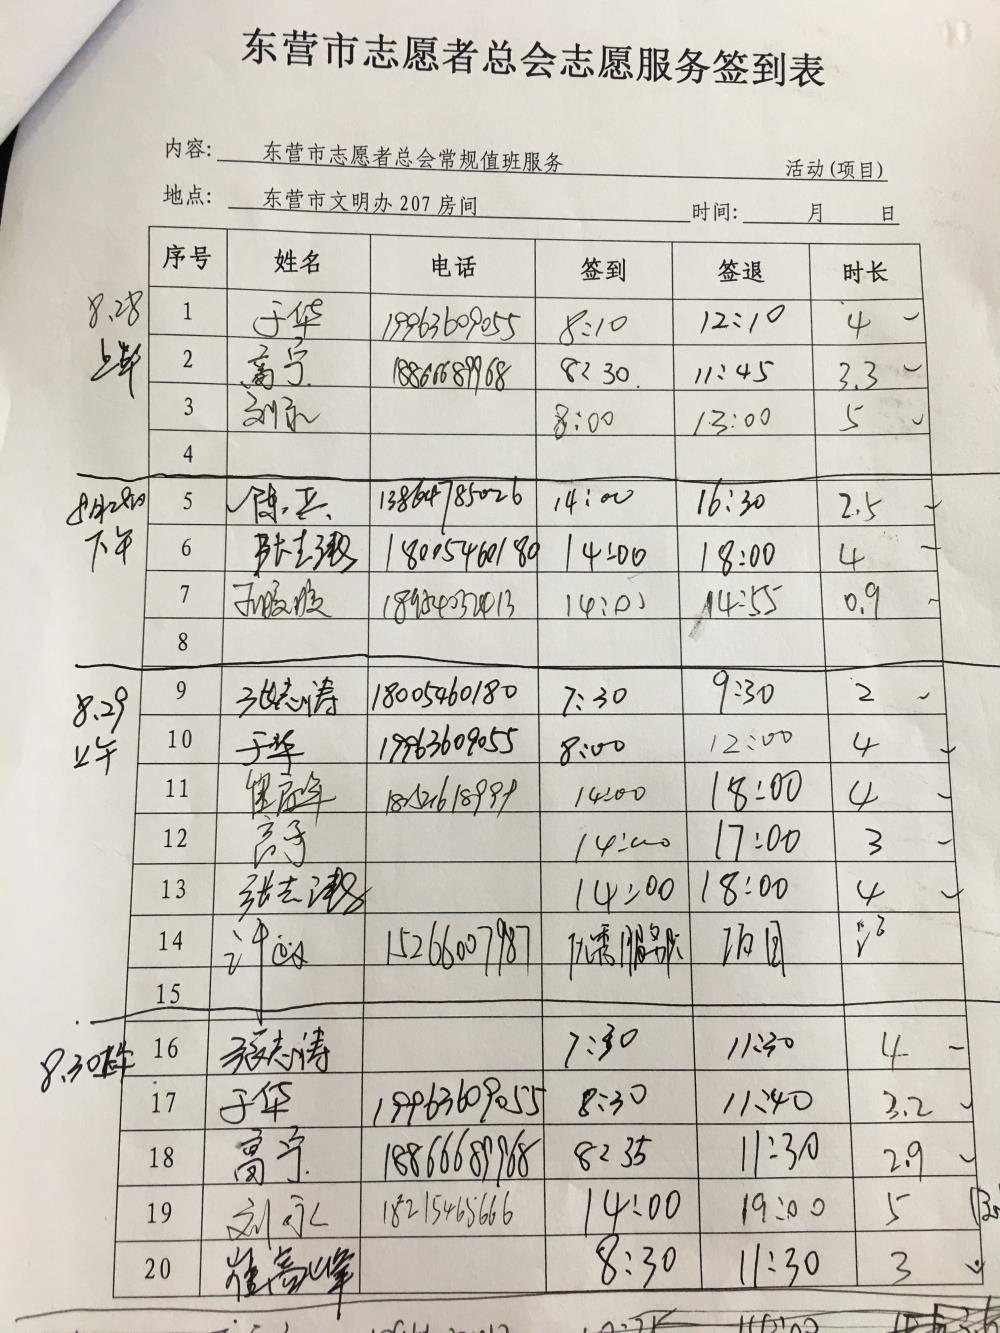 东营市志愿者总会志愿服务签到表
内容: 东营市志愿者总会常规值班服务 活动(项目)
地点: 东营市文明办207房间 时间: 月 日
序号 姓名 电话 签到 签退 时长
8.28
上午
1 于华 19963609055 8:10 12:10 4
2 高宁 18866689968 8:30 11:45 3.3
3 刘永 8:00 13:00 5
4
8月28日
下午
5 陈兵 13864785026 14:00 16:30 2.5
6 张志涛 18005460180 14:00 18:00 4
7 14:00 14:55 0.9
8
8.29
上午
9 张志涛 18005460180 7:30 9:30 2
10 于华 19963609055 8:00 12:00 4
11 14:00 18:00 4
12 高宁 14:00 17:00 3
13 张志涛 14:00 18:00 4
14 15266007987 优秀服务队 项目
15
8.30
16 张志涛 7:30 11:30 4
17 于华 19963609055 8:30 11:40 3.2
18 高宁 18866689968 8:35 11:30 2.9
19 刘永 18215465666 14:00 19:00 5
20 8:30 11:30 3